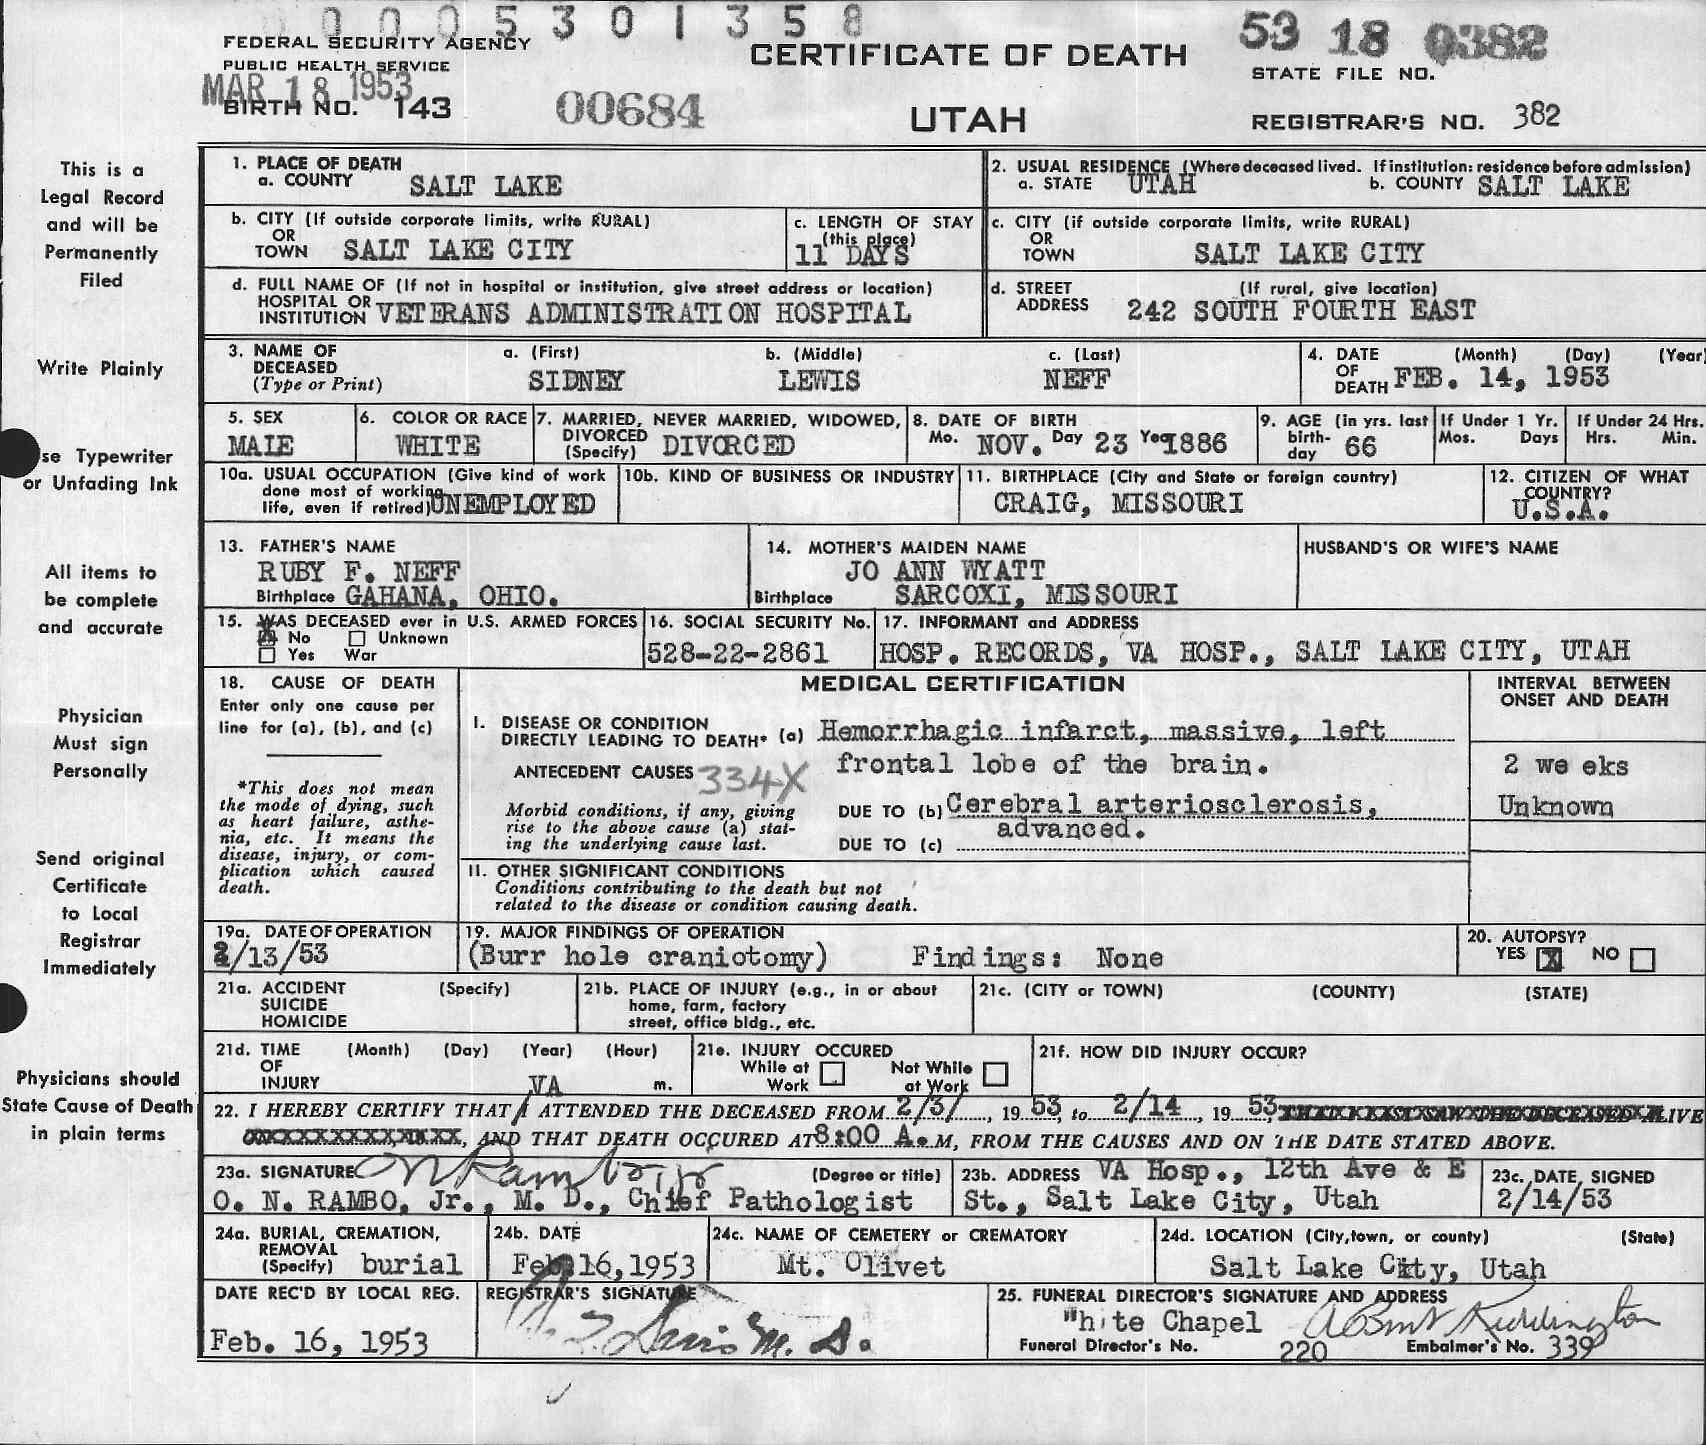 0005301358
FEDERAL SECURITY AGENCY
PUBLIC HEALTH SERVICE
MAR 18 1953
BIRTH NO. 143
00684
CERTIFICATE OF DEATH
UTAH
53 18 0382
STATE FILE NO.
REGISTRAR'S NO. 382
This is a
Legal Record
and will be
Permanently
Filed
Write Plainly
se Typewriter
or Unfading Ink
All items to
be complete
and accurate
Physician
Must sign
Personally
Send original
Certificate
to Local
Registrar
Immediately
Physicians should
State Cause of Death
in plain terms
1. PLACE OF DEATH
a. COUNTY SALT LAKE
2. USUAL RESIDENCE (Where deceased lived. If institution: residence before admission)
a. STATE UTAH b. COUNTY SALT LAKE
b. CITY (If outside corporate limits, write RURAL)
OR
TOWN SALT LAKE CITY
c. LENGTH OF STAY
(this place)
11 DAYS
c. CITY (if outside corporate limits, write RURAL)
OR
TOWN SALT LAKE CITY
d. FULL NAME OF (If not in hospital or institution, give street address or location)
HOSPITAL OR
INSTITUTION VETERANS ADMINISTRATION HOSPITAL
d. STREET (If rural, give location)
ADDRESS 242 SOUTH FOURTH EAST
3. NAME OF DECEASED (Type or Print)
a. (First) b. (Middle) c. (Last)
SIDNEY LEWIS NEFF
4. DATE (Month) (Day) (Year)
OF
DEATH FEB. 14, 1953
5. SEX
MALE
6. COLOR OR RACE
WHITE
7. MARRIED, NEVER MARRIED, WIDOWED,
DIVORCED
(Specify) DIVORCED
8. DATE OF BIRTH
Mo. NOV. Day 23 Year 1886
9. AGE (in yrs. last
birth-
day 66
If Under 1 Yr.
Mos. Days
If Under 24 Hrs.
Hrs. Min.
10a. USUAL OCCUPATION (Give kind of work
done most of working
life, even if retired) UNEMPLOYED
10b. KIND OF BUSINESS OR INDUSTRY
11. BIRTHPLACE (City and State or foreign country)
CRAIG, MISSOURI
12. CITIZEN OF WHAT
COUNTRY?
U.S.A.
13. FATHER'S NAME
RUBY F. NEFF
Birthplace GAHANA, OHIO.
14. MOTHER'S MAIDEN NAME
JO ANN WYATT
Birthplace SARCOXI, MISSOURI
HUSBAND'S OR WIFE'S NAME
15. WAS DECEASED ever in U.S. ARMED FORCES
No Unknown
Yes War
16. SOCIAL SECURITY No.
528-22-2861
17. INFORMANT and ADDRESS
HOSP. RECORDS, VA HOSP., SALT LAKE CITY, UTAH
18. CAUSE OF DEATH
Enter only one cause per
line for (a), (b), and (c)
*This does not mean
the mode of dying, such
as heart failure, asthe-
nia, etc. It means the
disease, injury, or com-
plication which caused
death.
MEDICAL CERTIFICATION
INTERVAL BETWEEN
ONSET AND DEATH
I. DISEASE OR CONDITION
DIRECTLY LEADING TO DEATH* (a) Hemorrhagic infarct, massive, left
frontal lobe of the brain.
2 we eks
ANTECEDENT CAUSES 334X
Morbid conditions, if any, giving
rise to the above cause (a) stat-
ing the underlying cause last.
DUE TO (b) Cerebral arteriosclerosis,
advanced.
Unknown
DUE TO (c)
II. OTHER SIGNIFICANT CONDITIONS
Conditions contributing to the death but not
related to the disease or condition causing death.
19a. DATE OF OPERATION
2/13/53
19. MAJOR FINDINGS OF OPERATION
(Burr hole craniotomy) Findings: None
20. AUTOPSY?
YES X NO
21a. ACCIDENT (Specify)
SUICIDE
HOMICIDE
21b. PLACE OF INJURY (e.g., in or about
home, farm, factory
street, office bldg., etc.
21c. (CITY or TOWN) (COUNTY) (STATE)
21d. TIME (Month) (Day) (Year) (Hour)
OF
INJURY m.
21e. INJURY OCCURED
While at Work Not While at Work
21f. HOW DID INJURY OCCUR?
VA
22. I HEREBY CERTIFY THAT / ATTENDED THE DECEASED FROM 2/3/, 19 53, to 2/14, 19 53, THAT I LAST SAW THE DECEASED ALIVE
ON XXXXXXXXXX, 19XXX, AND THAT DEATH OCCURED AT 8:00 A. M, FROM THE CAUSES AND ON THE DATE STATED ABOVE.
23a. SIGNATURE ON Rambo Jr (Degree or title)
O. N. RAMBO, Jr., M. D., Chief Pathologist
23b. ADDRESS VA Hosp., 12th Ave & E
St., Salt Lake City, Utah
23c. DATE SIGNED
2/14/53
24a. BURIAL, CREMATION,
REMOVAL
(Specify) burial
24b. DATE
Feb. 16, 1953
24c. NAME OF CEMETERY or CREMATORY
Mt. Olivet
24d. LOCATION (City, town, or county) (State)
Salt Lake City, Utah
DATE REC'D BY LOCAL REG.
Feb. 16, 1953
REGISTRAR'S SIGNATURE
M. D.
25. FUNERAL DIRECTOR'S SIGNATURE AND ADDRESS
White Chapel
Funeral Director's No. 220
Embalmer's No. 339